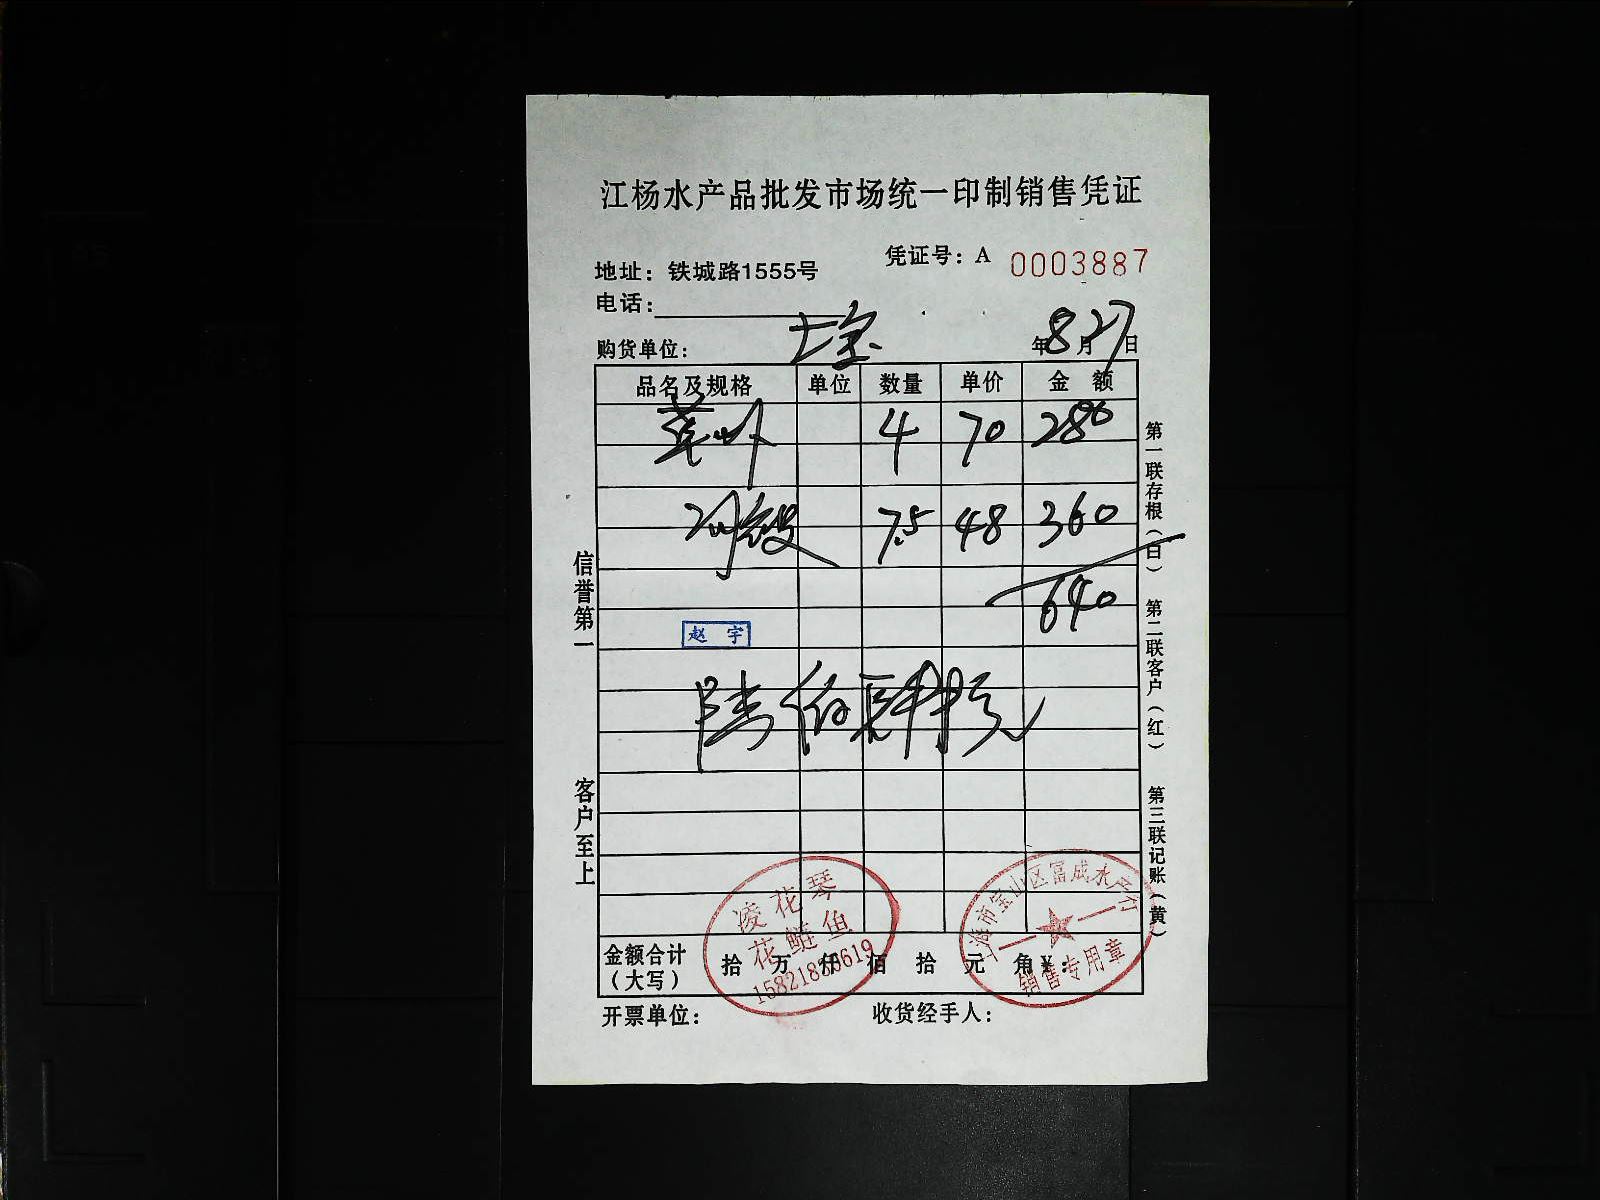 江杨水产品批发市场统一印制销售凭证
凭证号：A 0003887
地址：铁城路1555号
电话：
购货单位： 年8月27日
品名及规格 单位 数量 单价 金 额
4 70 280
7.5 48 360
640
赵 宇
陆佰肆拾元
金额合计（大写） 拾 万 仟 佰 拾 元 角¥：
开票单位： 收货经手人：
信誉第一
客户至上
第一联存根（白）
第二联客户（红）
第三联记账（黄）
凌花琴
花鲢鱼
上海市宝山区富成水产行
销售专用章